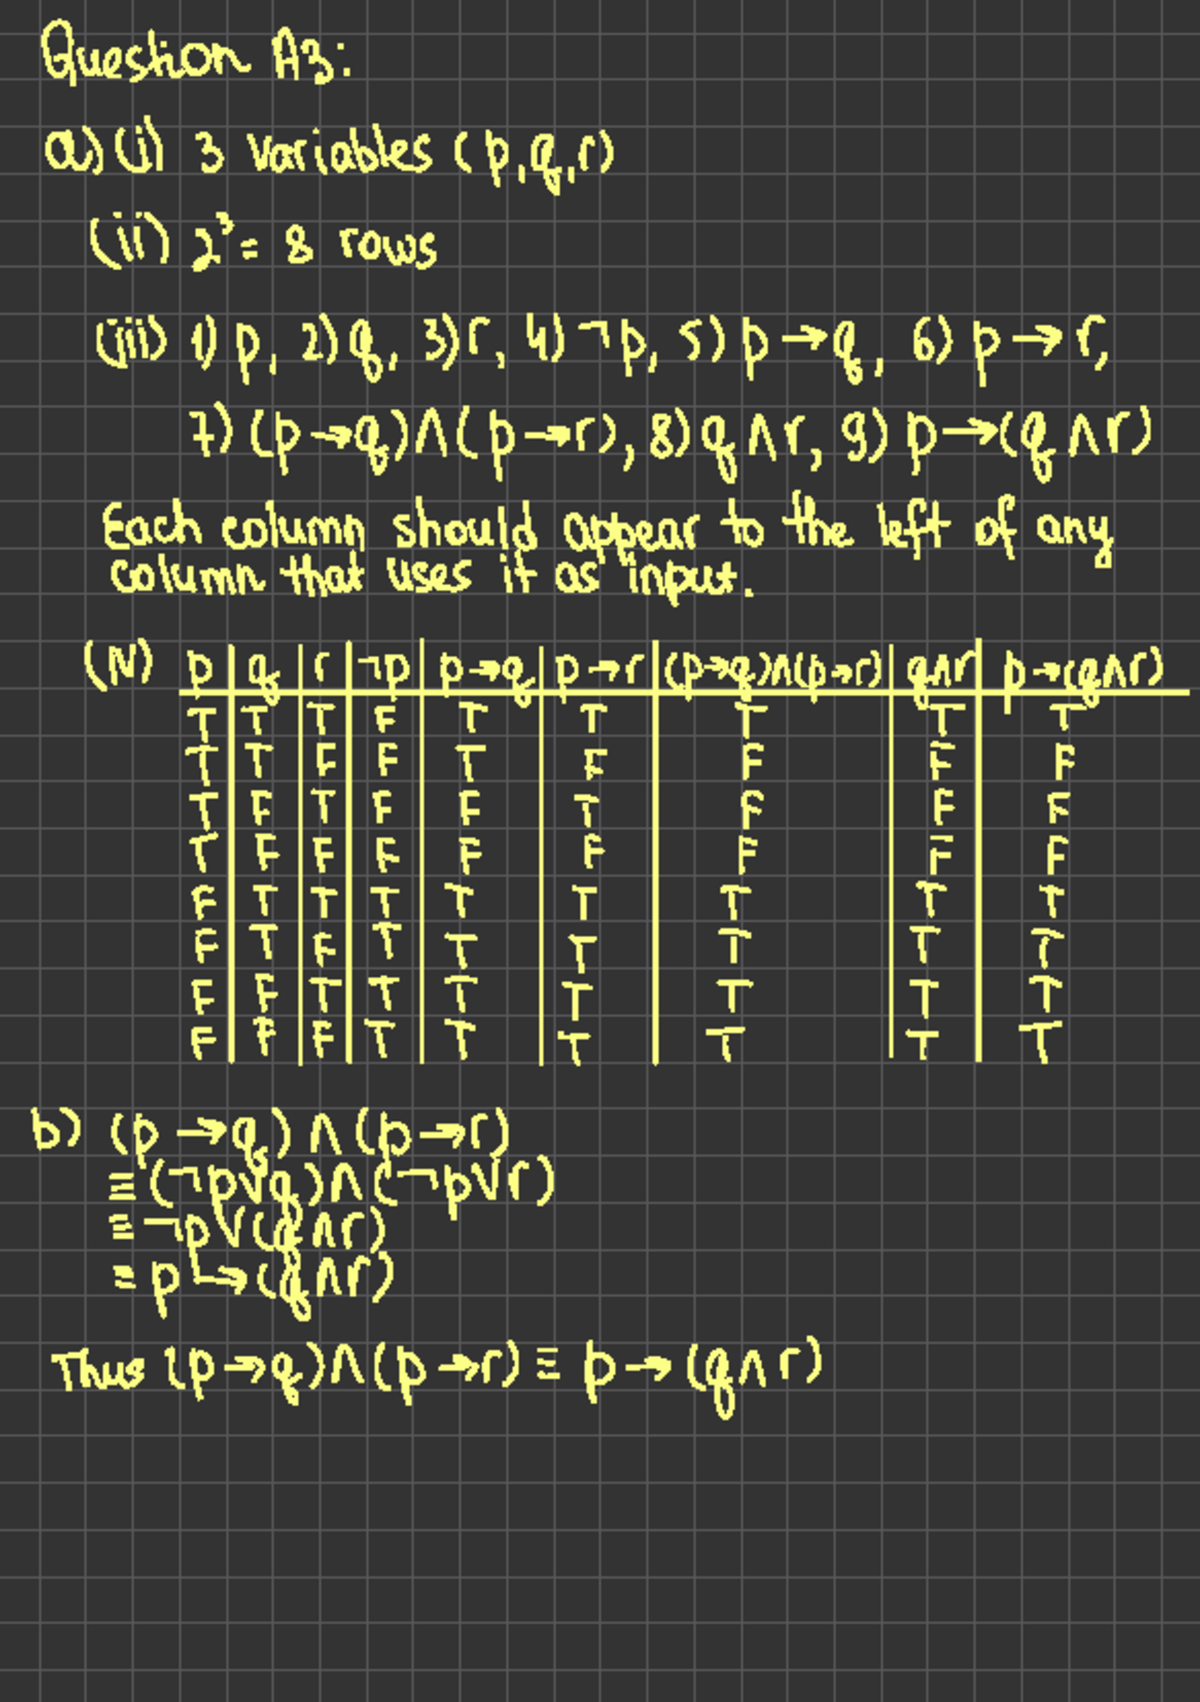 Question A3:
a) (i) 3 variables (p,q,r)
(ii) 2³ = 8 rows
(iii) 1) p, 2) q, 3) r, 4) ¬p, 5) p→q, 6) p→r,
7) (p→q)∧(p→r), 8) q∧r, 9) p→(q∧r)
Each column should appear to the left of any
column that uses it as input.
(iv) p | q | r | ¬p | p→q | p→r | (p→q)∧(p→r) | q∧r | p→(q∧r)
T | T | T | F | T | T | T | T | T
T | T | F | F | T | F | F | F | F
T | F | T | F | F | T | F | F | F
T | F | F | F | F | F | F | F | F
F | T | T | T | T | T | T | T | T
F | T | F | T | T | T | T | T | T
F | F | T | T | T | T | T | T | T
F | F | F | T | T | T | T | T | T
b) (p→q)∧(p→r)
≡(¬p∨q)∧(¬p∨r)
≡¬p∨(q∧r)
≡p→(q∧r)
Thus (p→q)∧(p→r)≡p→(q∧r)